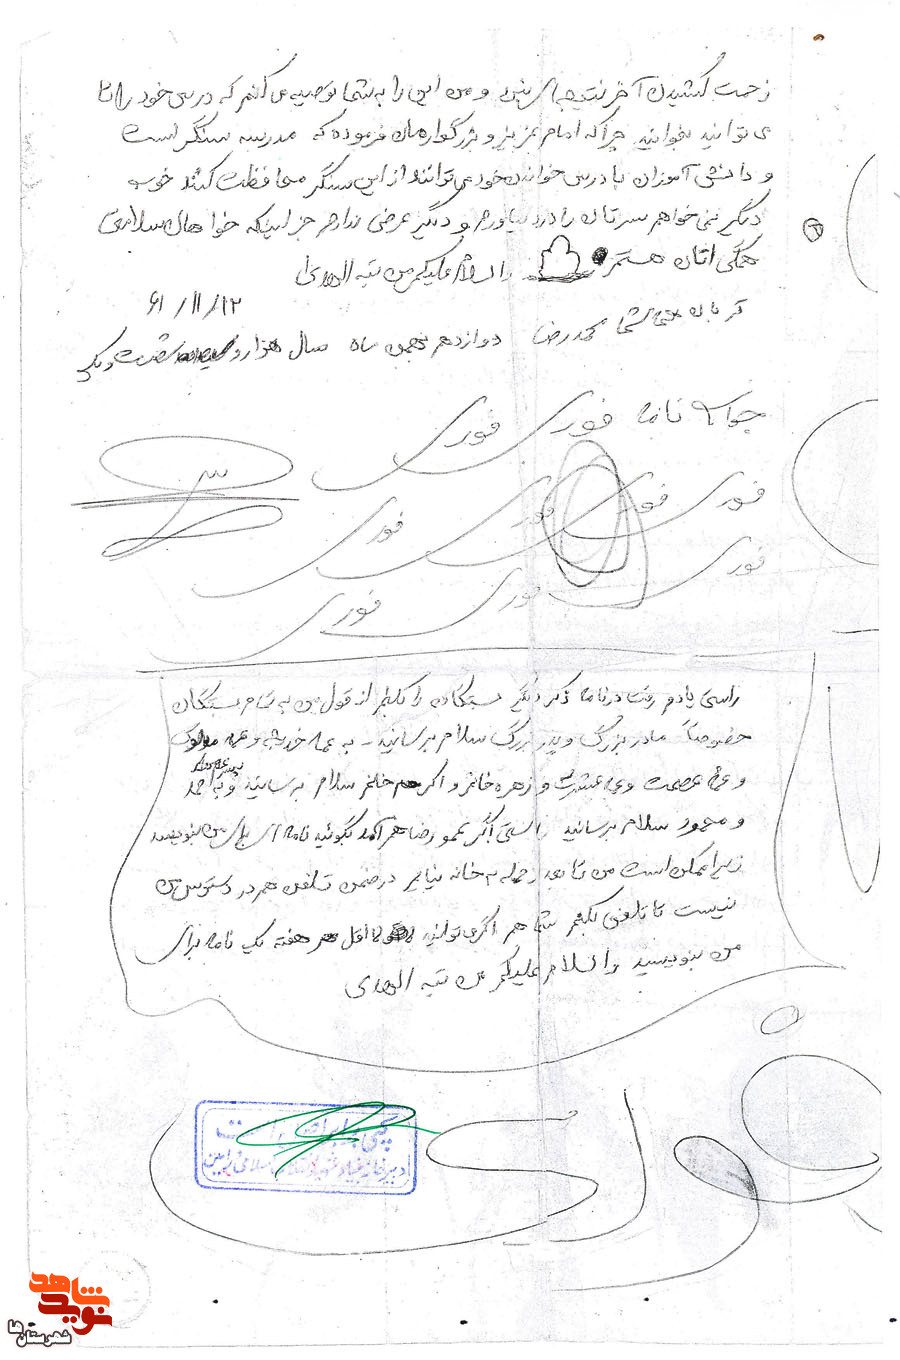 زحمت کشیدن آخر نتیجه ای نبود و من این را به شما توصیه می کنم که درس خود را تا
می توانید بخوانید چرا که امام عزیز و بزرگوارمان فرموده که مدرسه سنگر است
و دانش آموزان با درس خواندن خود می توانند از این سنگر محافظت کنند خوب
دیگر نمی خواهم سرتان را درد بیاورم و دیگر عرضی ندارم جز اینکه خواهان سلامتی
همگی اتان هستم والسلام علیکم من تبه الهدی
۶۱/۱۱/۱۲
قربان همگی شما محمدرضا دوازدهم بهمن ماه سال هزار و سیصد شصت و یک
جواب نامه فوری فوری
فوری فوری فوری فوری
فوری فوری فوری
راستی یادم رفت در نامه ذکر دیگر بستگان را بکنم از قول من به تمام بستگان
خصوصاً مادر بزرگ و پدر بزرگ سلام برسانید - به عمه خدیجه و عمه
و عمه عصمت و عمه عشرت و زهره خانم و اکرم خانم سلام برسانید و به احمد
و محمود سلام برسانید راستی اگر عمو رضا هم آمد بگوئید نامه ای برای من بنویسد
زیرا ممکن است من تا بعد از حمله به خانه نیایم در ضمن تلفن هم در دسترس من
نیست تا تلفنی بکنم شما هم اگر می توانید لااقل هر هفته یک نامه برای
من بنویسید والسلام علیکم من تبه الهدی
فوری
کپی برابر اصل است
دبیرخانه بنیاد شهید انقلاب اسلامی ورامین
نوید شاهد
شهرستان ها